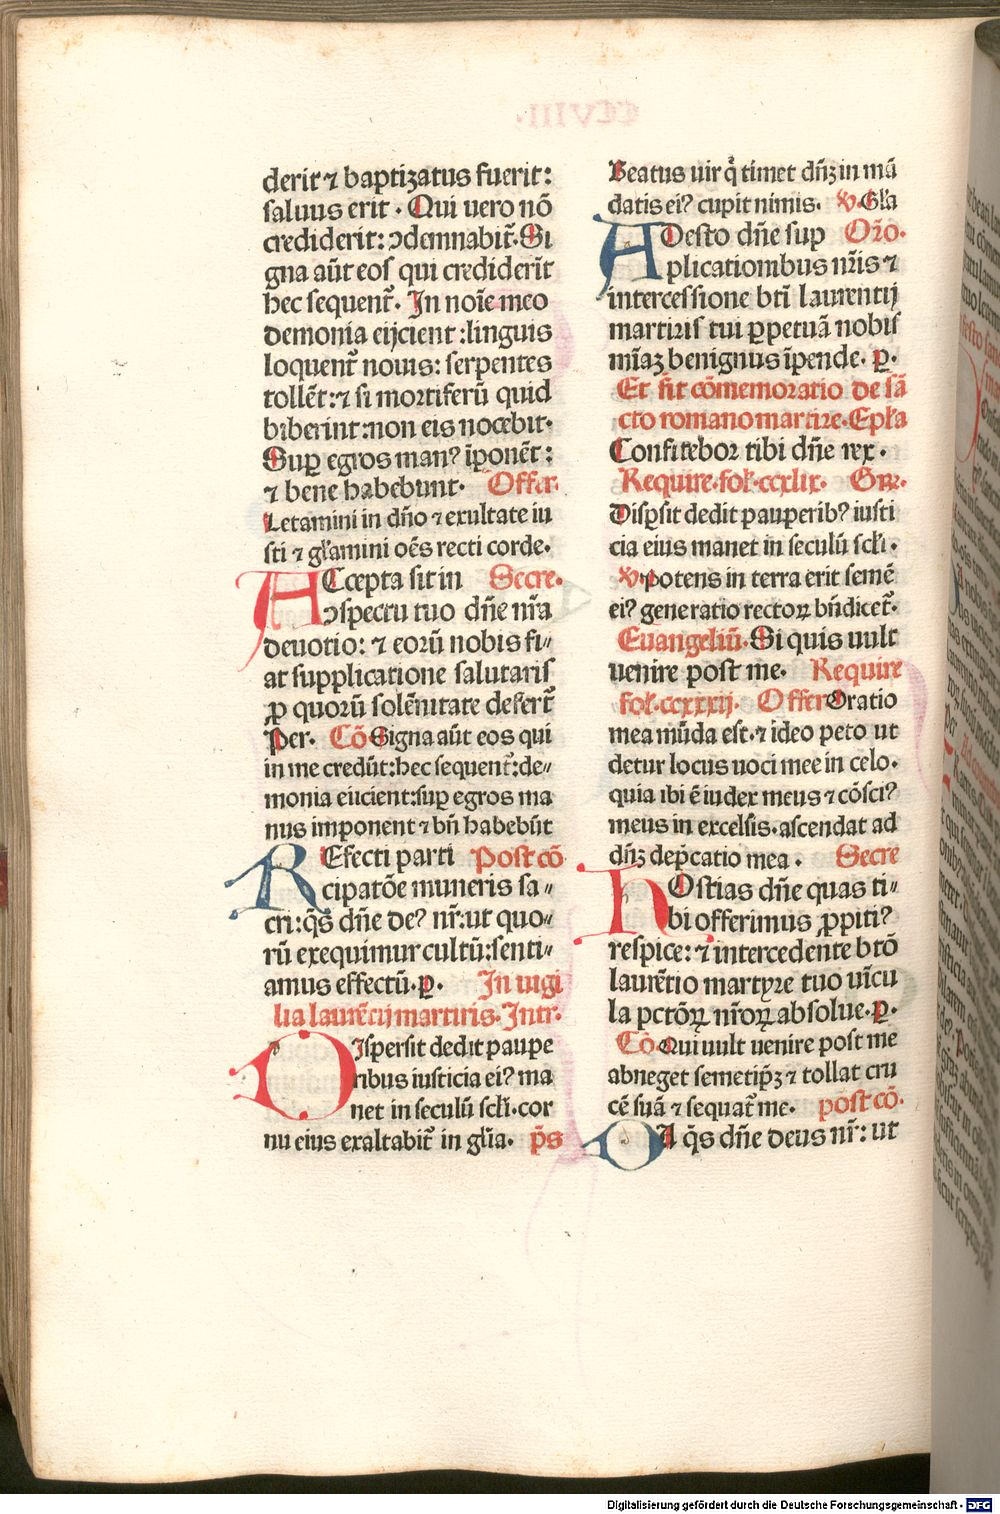 derit ⁊ baptizatus fuerit:
saluus erit. Qui uero nō
crediderit: ↄdemnabit̄. Si
gna aūt eos qui crediderīt
hec sequent̄. In noīe meo
demonia eijcient: linguis
loquent̄ nouis: serpentes
tollēt: ⁊ si mortiferū quid
biberint: non eis nocebit.
Suꝑ egros manꝰ īponēt:
⁊ bene habebunt. Offer.
Letamini in dn̄o ⁊ exultate iu
sti ⁊ gl̄amini oēs recti corde.
ACcepta sit in Secre.
ↄspectu tuo dn̄e nr̄a
deuotio: ⁊ eorū nobis fi„
at supplicatione salutaris
ꝓ quorū solēnitate defert̄
Per. Cō Signa aūt eos qui
in me credūt: hec sequent̄: de„
monia eiicient: suꝑ egros ma
nus imponent ⁊ bn̄ habebūt
REfecti parti Post cō
cipatōe muneris sa„
cri: q̄s dn̄e deꝰ nr̄: ut quo„
rū exequimur cultū: senti„
amus effectū. ꝑ. In uigi
lia laurēcij martiris. Intr.
DIspersit dedit paupe
ribus iusticia eiꝰ ma
net in seculū scl̄i. cor
nu eius exaltabit̄ in gl̄ia. p̄s
Beatus uir q̄ timet dn̄ꝫ in mā
datis eiꝰ cupit nimis. ℣. Gl̄a
ADesto dn̄e sup Or̄o.
plicationibus nr̄is ⁊
intercessione bt̄i laurentij
martiris tui ꝑpetuā nobis
mīaꝫ benignus īpende. ꝑ.
Et fit cōmemoratio de sā
cto romano martire. Epl̄a
Confitebor tibi dn̄e rex.
Require. fol. ccxlix. Gr̄.
Disꝑsit dedit pauperibꝰ iusti
cia eius manet in seculū scl̄i.
℣. potens in terra erit semē
eiꝰ generatio rectoꝝ bn̄dicet̄.
Euangeliū. Si quis uult
uenire post me. Require
fol. ccxxxij. Offer Oratio
mea mūda est. ⁊ ideo peto ut
detur locus uoci mee in celo.
quia ibi ē iudex meus ⁊ cōsciꝰ
meus in excelsis. ascendat ad
dn̄ꝫ dep̄catio mea. Secre
HOstias dn̄e quas ti„
bi offerimus ꝓpitiꝰ
respice: ⁊ intercedente btō
laurētio martyre tuo uīcu
la pctōꝝ nr̄oꝝ absolue. ꝑ.
Cō Qui uult uenire post me
abneget semetip̄ꝫ ⁊ tollat cru
cē suā ⁊ sequat̄ me. pōst cō.
DA q̄s dn̄e deus nr̄: ut
Digitalisierung gefördert durch die Deutsche Forschungsgemeinschaft - DFG